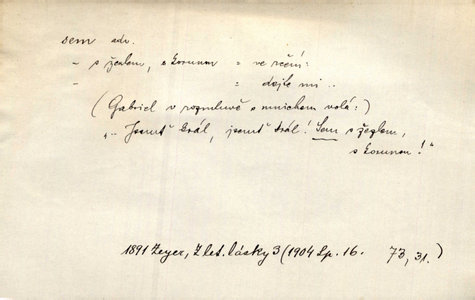 sem adv.
- s žezlem, s korunou = ve rčení:
- = dejte mi ..
(Gabriel v rozmluvě s mnichem volá:)
„.. Jsemť král, jsemť král! Sem s žezlem,
s korunou!"
1891 Zeyer, Z let. lásky 3 (1904 Sp. 16. 73, 31.)